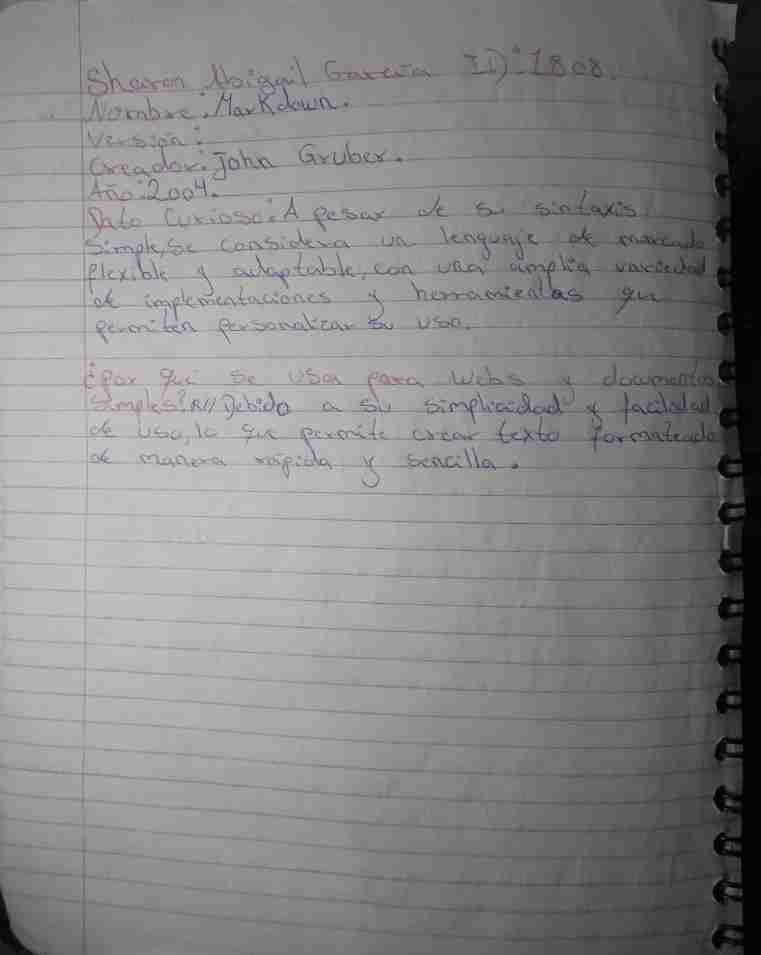 Sharon Abiggil García ID:1808.
Nombre: Markdown.
Versión:
Creador: John Gruber.
Año: 2004.
Dato Curioso: A pesar de su sintaxis
simple, se considera un lenguaje de marcado
flexible y adaptable, con una amplia variedad
de implementaciones y herramientas que
permiten personalizar su uso.
¿Por qué se usa para webs y documentos
simples? R// Debido a su simplicidad y facilidad
de uso, lo que permite crear texto formateado
de manera rápida y sencilla.